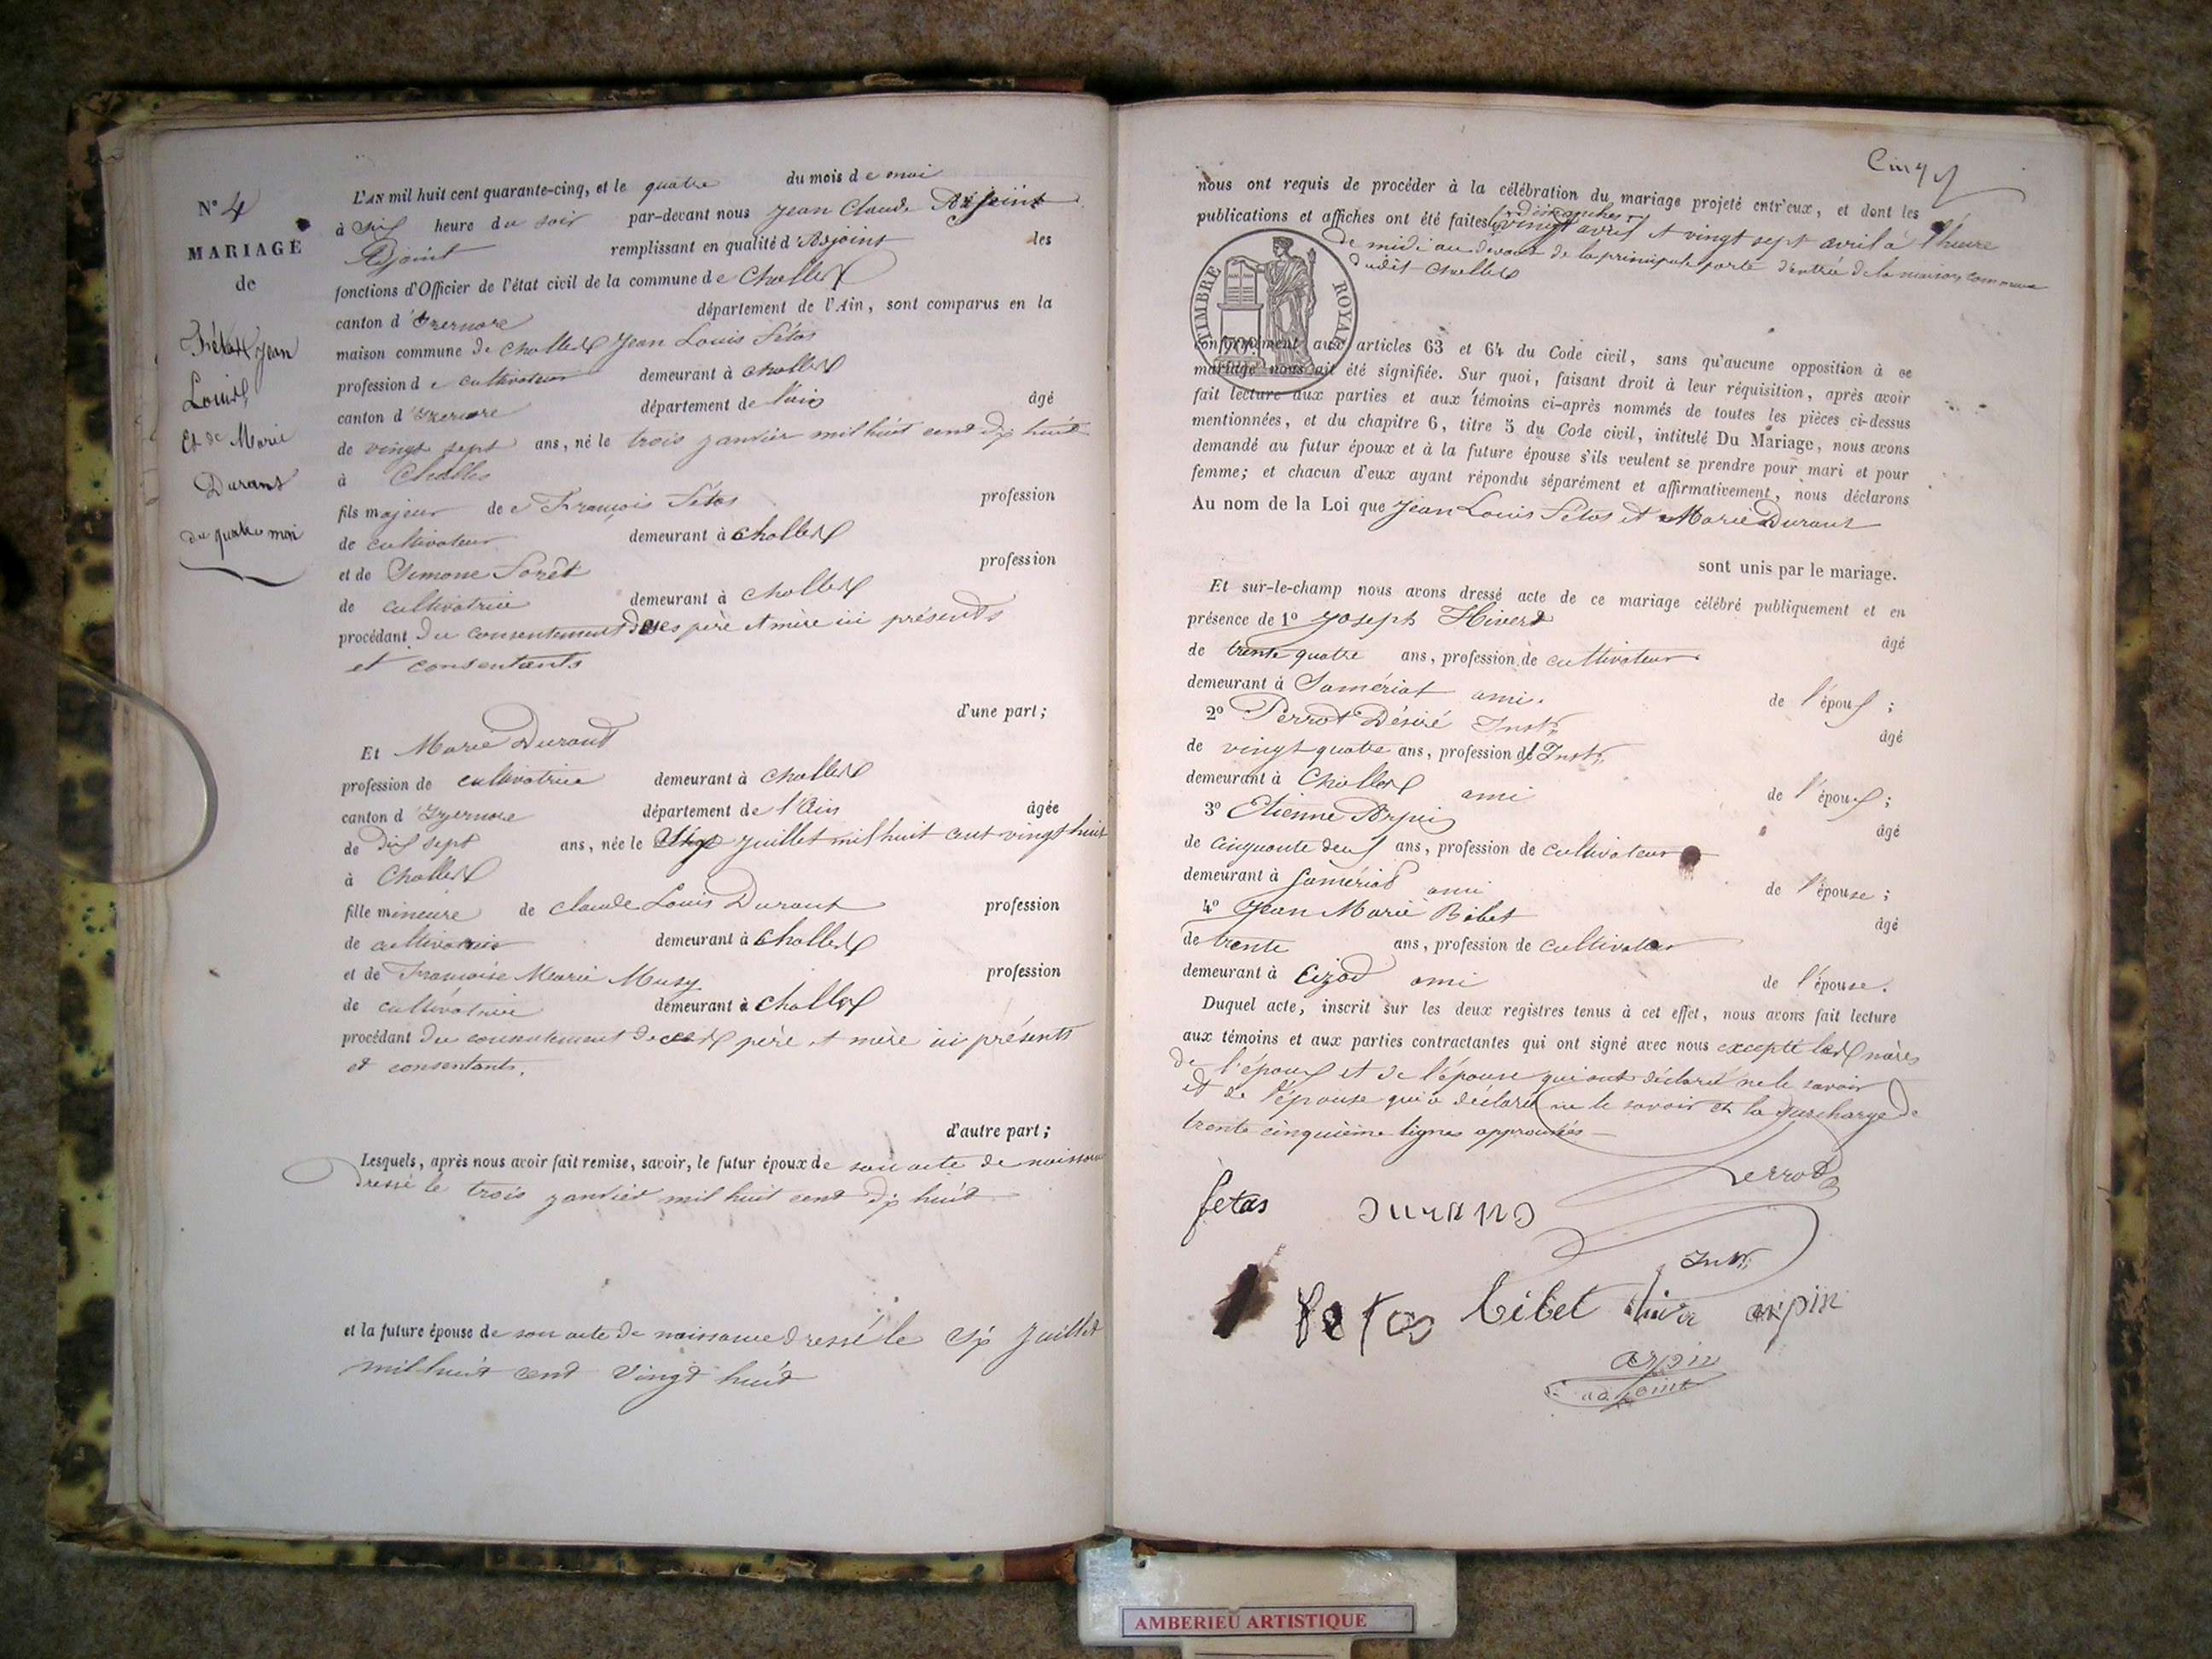 N° 4
MARIAGE
de
Fétas Jean
Louis
Et de Marie
Durand
du quatre mai
L'AN mil huit cent quarante-cinq, et le quatre du mois de mai
à six heure du soir par-devant nous Jean Claude
Adjoint remplissant en qualité d'Adjoint les
fonctions d'Officier de l'état civil de la commune de Challes
canton d'Izernore département de l'Ain, sont comparus en la
maison commune de Challes Jean Louis Fétas
profession de cultivateur demeurant à Challes
canton d'Izernore département de l'ain âgé
de vingt sept ans, né le trois janvier mil huit cent dix huit
à Challes
fils majeur de François Fétas profession
de cultivateur demeurant à Challes
et de Simone Forêt profession
de cultivatrice demeurant à Challes
procédant du consentement de ses père et mère ici présents
et consentants
d'une part;
Et Marie Durand
profession de cultivatrice demeurant à Challes
canton d'Izernore département de l'Ain âgée
de dix sept ans, née le Six juillet mil huit cent vingt huit
à Challes
fille mineure de Claude Louis Durand profession
de cultivateur demeurant à Challes
et de Françoise Marie Musy profession
de cultivatrice demeurant à Challes
procédant du consentement de ses père et mère ici présents
et consentants.
d'autre part;
Lesquels, après nous avoir fait remise, savoir, le futur époux de son acte de naissance
dressé le trois janvier mil huit cent dix huit
et la future épouse de son acte de naissance dressé le six Juillet
mil huit cent vingt huit
Cinq
nous ont requis de procéder à la célébration du mariage projeté entr'eux, et dont les
dimanches
publications et affiches ont été faites vingt avril et vingt sept avril à l'heure
de midi au devant de la principale porte d'entrée de la maison commune
dudit Challes
TIMBRE ROYAL
conformément aux articles 63 et 64 du Code civil, sans qu'aucune opposition à ce
mariage nous ait été signifiée. Sur quoi, faisant droit à leur réquisition, après avoir
fait lecture aux parties et aux témoins ci-après nommés de toutes les pièces ci-dessus
mentionnées, et du chapitre 6, titre 5 du Code civil, intitulé Du Mariage, nous avons
demandé au futur époux et à la future épouse s'ils veulent se prendre pour mari et pour
femme; et chacun d'eux ayant répondu séparément et affirmativement, nous déclarons
Au nom de la Loi que Jean Louis Fétas et Marie Durand
sont unis par le mariage.
Et sur-le-champ nous avons dressé acte de ce mariage célébré publiquement et en
présence de 1° Joseph Hivert âgé
de trente quatre ans, profession de cultivateur
demeurant à Samériat ami de l'époux;
2° Perrot Désiré Instr. âgé
de vingt quatre ans, profession d'Instr.
demeurant à Challes ami de l'époux;
3° Etienne Arpin âgé
de cinquante deux ans, profession de cultivateur
demeurant à Samériat ami de l'épouse;
4° Jean Marie Bibet âgé
de trente ans, profession de cultivateur
demeurant à Cizod ami de l'épouse.
Duquel acte, inscrit sur les deux registres tenus à cet effet, nous avons fait lecture
aux témoins et aux parties contractantes qui ont signé avec nous excepté les mères
de l'époux et de l'épouse qui ont déclaré ne le savoir
et de l'épouse qui a déclaré ne le savoir et la surcharge de
trente cinquième lignes approuvés
Perrot
fetas durand
Instr.
fetas bibet hiver arpin
arpin
adjoint
AMBERIEU ARTISTIQUE